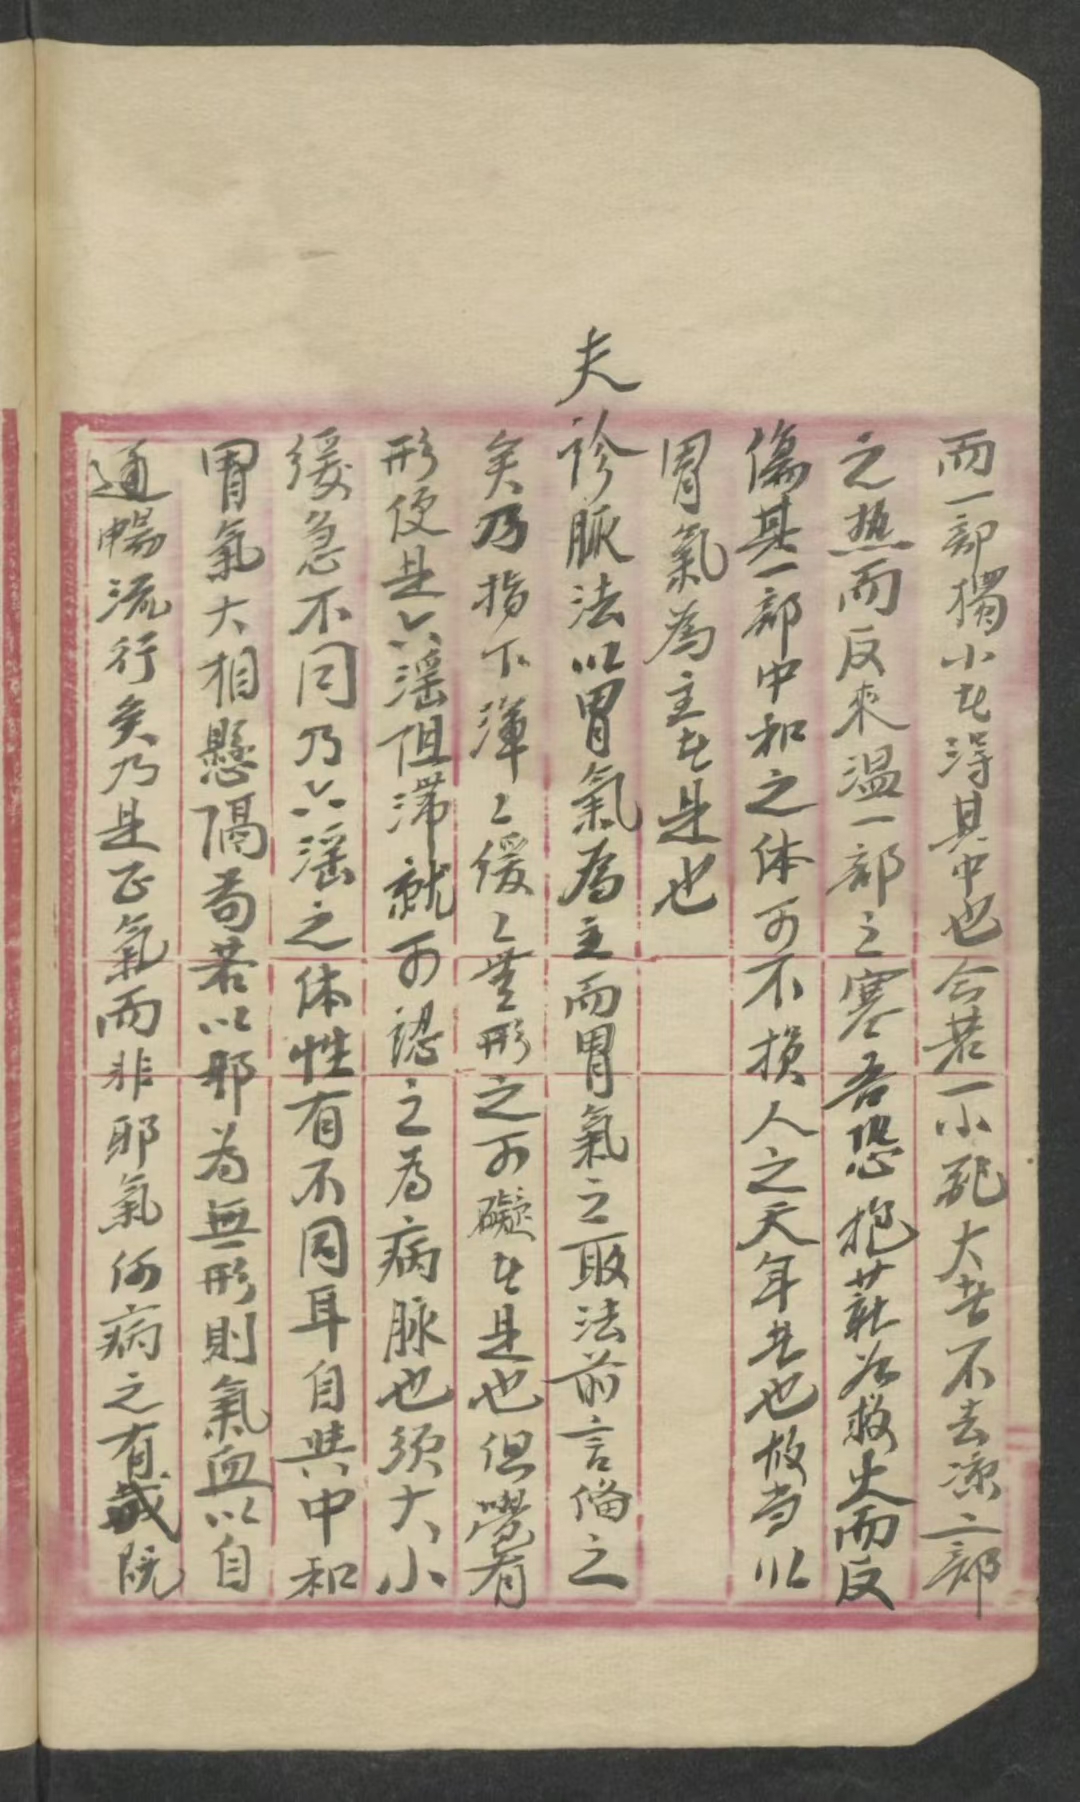 而一部獨小者得其中也今若一小記大者不去凉二部
之热而反來温一部之寒吾恐抱薪為救火而反
傷其一部中和之体可不損人之天年者也故當以
胃氣為主者是也
夫診脈法以胃氣為主而胃氣之取法前言俻之
矣乃指下渾〻緩〻無形之可礙者是也但覺有
形便是六滛阻滞就可認之為病脉也須大小
緩急不同乃六滛之体性有不同耳自與中和
胃氣大相懸隔苟若以邪為無形則氣血以自
通暢流行矣乃是正氣而非邪氣何病之有哉阮